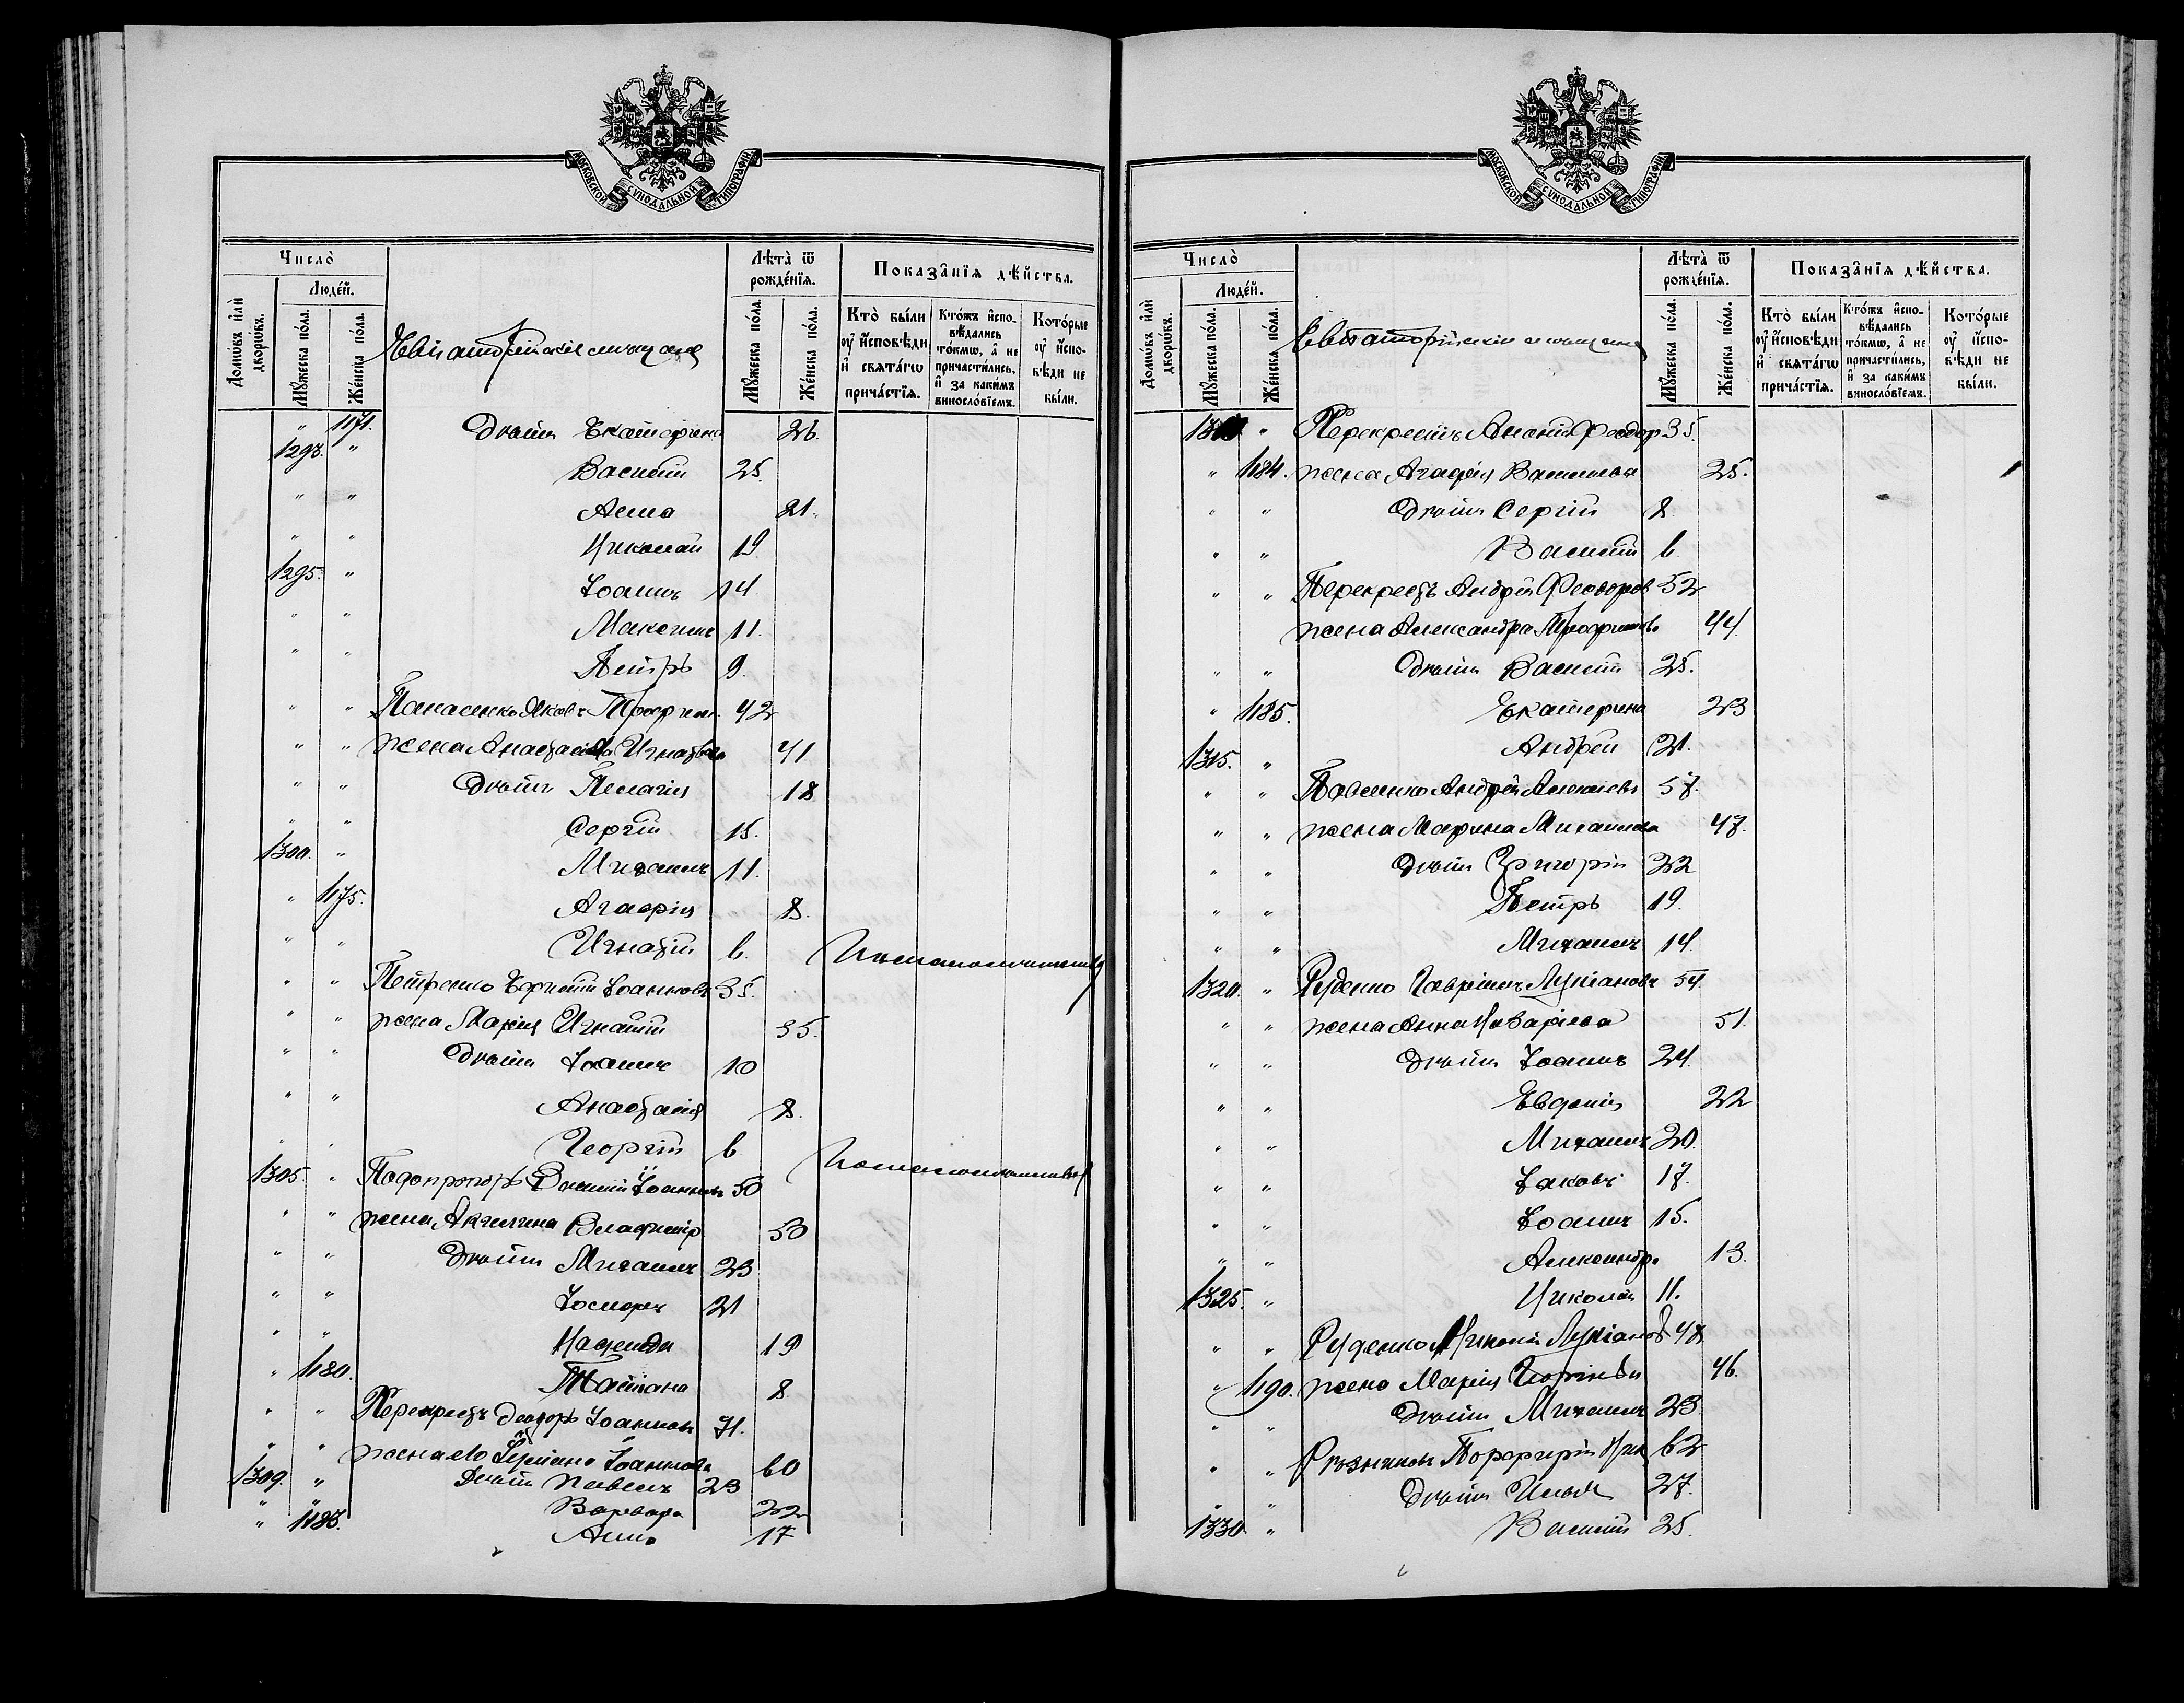 МОСКОВСКОЙ СѴНОДАЛЬНОЙ ТИПОГРАФІИ
Число̀
Домѡ́въ и҆лѝ дворѡ́въ.
Люде́й.
Мꙋ́жеска по́ла.
Же́нска по́ла.
Евпаторійскіе мѣщане
Лѣ́та ѿ рожде́нїѧ.
Мꙋ́жеска по́ла.
Же́нска по́ла.
Показа̑нїѧ дѣ́йства.
Кто̀ бы́ли ᲂу҆ и҆́сповѣди и҆ свѧта́гѡ прича́стїѧ.
Кто́жъ и҆спо-вѣ́дались то́кмѡ, а҆ не причасти́лись, и҆ за каки́мъ винослѡ́вїемъ.
Кото́рые ᲂу҆ и҆́спо-вѣди не бы́ли.
" 1171. Дѣти Екатерина 26.
1293. " Василій 25.
" " Анна 21.
" " Николай 19.
1295. " Іоаннъ 14.
" " Максимъ 11.
" " Петръ 9.
" " Панасенко Яковъ Трофим. 42
" " жена Анастасія Игнатьева 41
" " Дѣти Пелагія 18
" " Сергій 15.
1300. " Михаилъ 11.
" 1175. Агафія 8.
" " Игнатій 6.
" " Петренко Іоанновъ 35.
" " жена Марія Игнатій 35.
" " Дѣти Іоаннъ 10
" " Анастасія 8.
" " Георгій 6
1305. " Подопригоръ Василій Іоанновъ 50
" " жена Акилина Владимір 50
" " Дѣти Михаилъ 23
" " Іосифъ 21
" " Надежда 19
" 1180. Татіана 8
" " Перекрестъ Ѳеодоръ Іоанновъ 71.
" " жена его Іуліана Іоаннова 60
1309. " Дѣти Павелъ 23
" " Варвара 22
" 1183. Анна 17
МОСКОВСКОЙ СѴНОДАЛЬНОЙ ТИПОГРАФІИ
Число̀
Домѡ́въ и҆лѝ дворѡ́въ.
Люде́й.
Мꙋ́жеска по́ла.
Же́нска по́ла.
Евпаторійскіе мѣщане
Лѣ́та ѿ рожде́нїѧ.
Мꙋ́жеска по́ла.
Же́нска по́ла.
Показа̑нїѧ дѣ́йства.
Кто̀ бы́ли ᲂу҆ и҆́сповѣди и҆ свѧта́гѡ прича́стїѧ.
Кто́жъ и҆спо-вѣ́дались то́кмѡ, а҆ не причасти́лись, и҆ за каки́мъ винослѡ́вїемъ.
Кото́рые ᲂу҆ и҆́спо-вѣди не бы́ли.
" Перекрестъ Ананія Феодор 35.
" 1184. жена Агафія Васильева 25.
" " Дѣти Сергій 8
" " Василій 6
" " Перекрестъ Андрей Феодоров 52
жена Александра Трофимов. 44
" " Дѣти Василій 25.
" 1185. Екатерина 23
1315. " Андрей 21.
" " Павленко Андрей Алексіевъ 57.
" " жена Марина Михаилова 47.
" " Дѣти Григорій 22
" " Петръ 19.
" " Михаилъ 14.
1320. " Руденко Гавріилъ Лукіановъ 54
" " жена Анна Назаріева 51.
" " Дѣти Іоаннъ 24.
" " Евдокія 22
" " Михаилъ 20.
" " Іаковъ 17.
" " Іоаннъ 15.
" " Александр. 13.
1325. " Николай 11.
" " Руденко Николай Лукіанов 48
" 1190. жена Марія Георгіева 46.
" " Дѣти Михаилъ 23.
" " Рѣзников Порфирій Ник 62
" " Дѣти Илья 27.
1330. " Василій 25.